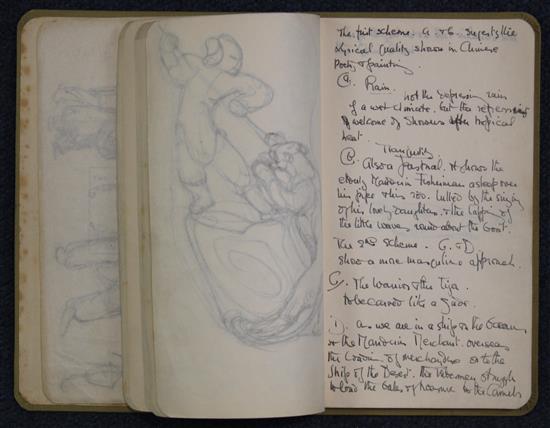 The first scheme. A & B. suggests the
Lyrical quality shown in Chinese
Poetry & painting.
A. Rain.
not the depressing rain
of a wet climate. but the refreshing
& welcome of showers after tropical
heat.
Tranquility
B. Also a pastoral. It shows the
elderly Mandarin Fisherman asleep over
his pipe & his rod. lulled by the singing
of his lovely daughters. & the lapping of
the little waves round about the boat.
The 2nd scheme. C. & D
show a more masculine approach.
C. The Warrior & the Tiger.
to be carved like a jade.
D. as we are in a ship on the Ocean
so the Mandarin Merchant oversees
the loading of merchandise on to the
Ship of the Desert. the Tribesmen struggle
to load the bales of treasure to the Camels